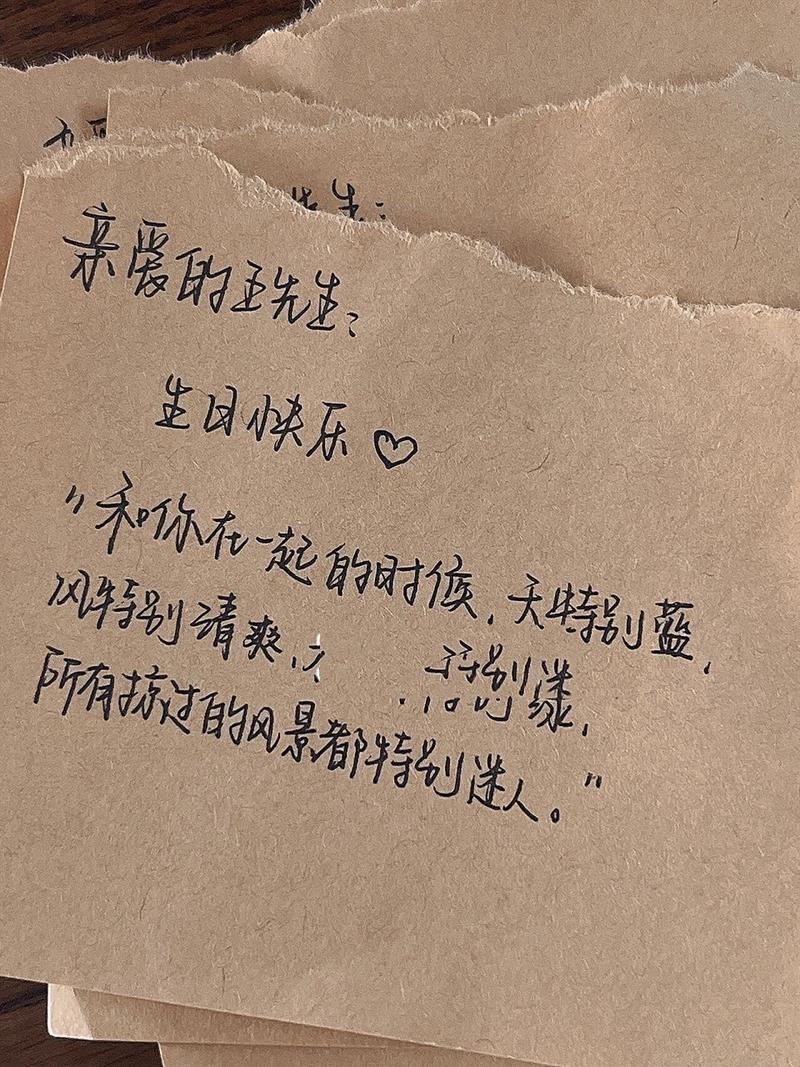 先生:
亲爱的王先生:
生日快乐♡
"和你在一起的时候,天特别蓝,
风特别清爽, 特别
所有掠过的风景都特别迷人。"